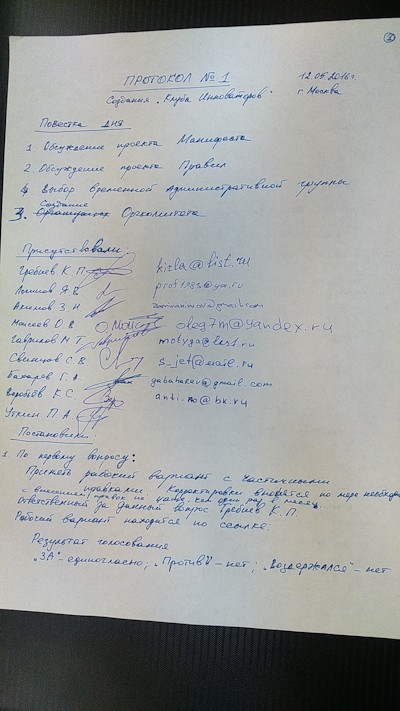 1
ПРОТОКОЛ №1 12.05.2016г.
Создания „Клуба Инноваторов" г. Москва
Повестка дня
1 Обсуждение проекта Манифеста
2. Обсуждение проекта Правил
4 Выбор временной административной группы
Создание
3. Оргкомитета
Присутствовали:
Гребнев К. П. kirla@list.ru
Логинов Я.В. prof1982@ya.ru
Акимов З. Н
Моисеев О В О.Мои oleg7m@yandex.ru
Гаврилов М Т. motyga@list.ru
Свинцов С. В. s_jet@mail.ru
Бахарев Г. А gabaharev@gmail.com
Воробьёв К.С. anti.no@bk.ru
Уткин П. А.
Постановили:
1. По первому вопросу:
Принять рабочий вариант с частичными
правками. Корректировки вносятся по мере необходи
с внесением правок не чаще, чем один раз в месяц.
ответственный за данный вопрос Гребнев К. П.
Рабочий вариант находится по ссылке:
Результат голосования
„ЗА"-единогласно; „Против"-нет; „Воздержался"-нет